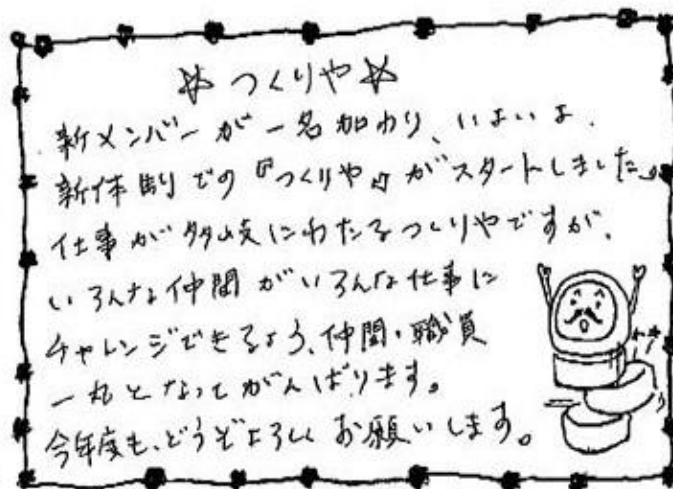 ☆ つくりや ☆
新メンバーが一名加わり、いよいよ、
新体制での『つくりや』がスタートしました。
仕事が多岐にわたるつくりやですが、
いろんな仲間がいろんな仕事に
チャレンジできるよう、仲間・職員
一丸となってがんばります。
今年度も、どうぞよろしくお願いします。